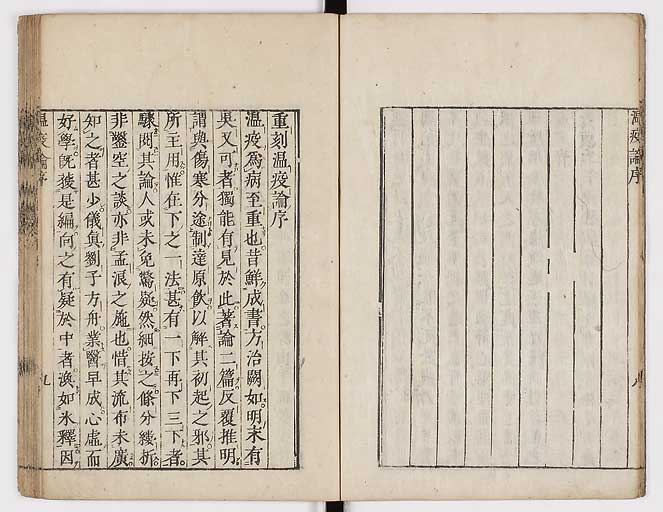 温疫論序
重刻温疫論序
温疫爲病至重也昔鮮成書方治闕如明末有
吳又可者獨能有見於此著論二篇反覆推明
謂與傷寒分途制達原飲以解其初起之邪其
所主用惟在下之一法甚有一下再下三下者
驟閲其論人或未免驚疑然細按之條分縷析
非鑿空之談亦非孟浪之施也惜其流布未廣
知之者甚少儀眞劉子方舟業醫早成心虛而
好學既獲是編向之有疑於中者渙如氷釋因
温疫論序
九